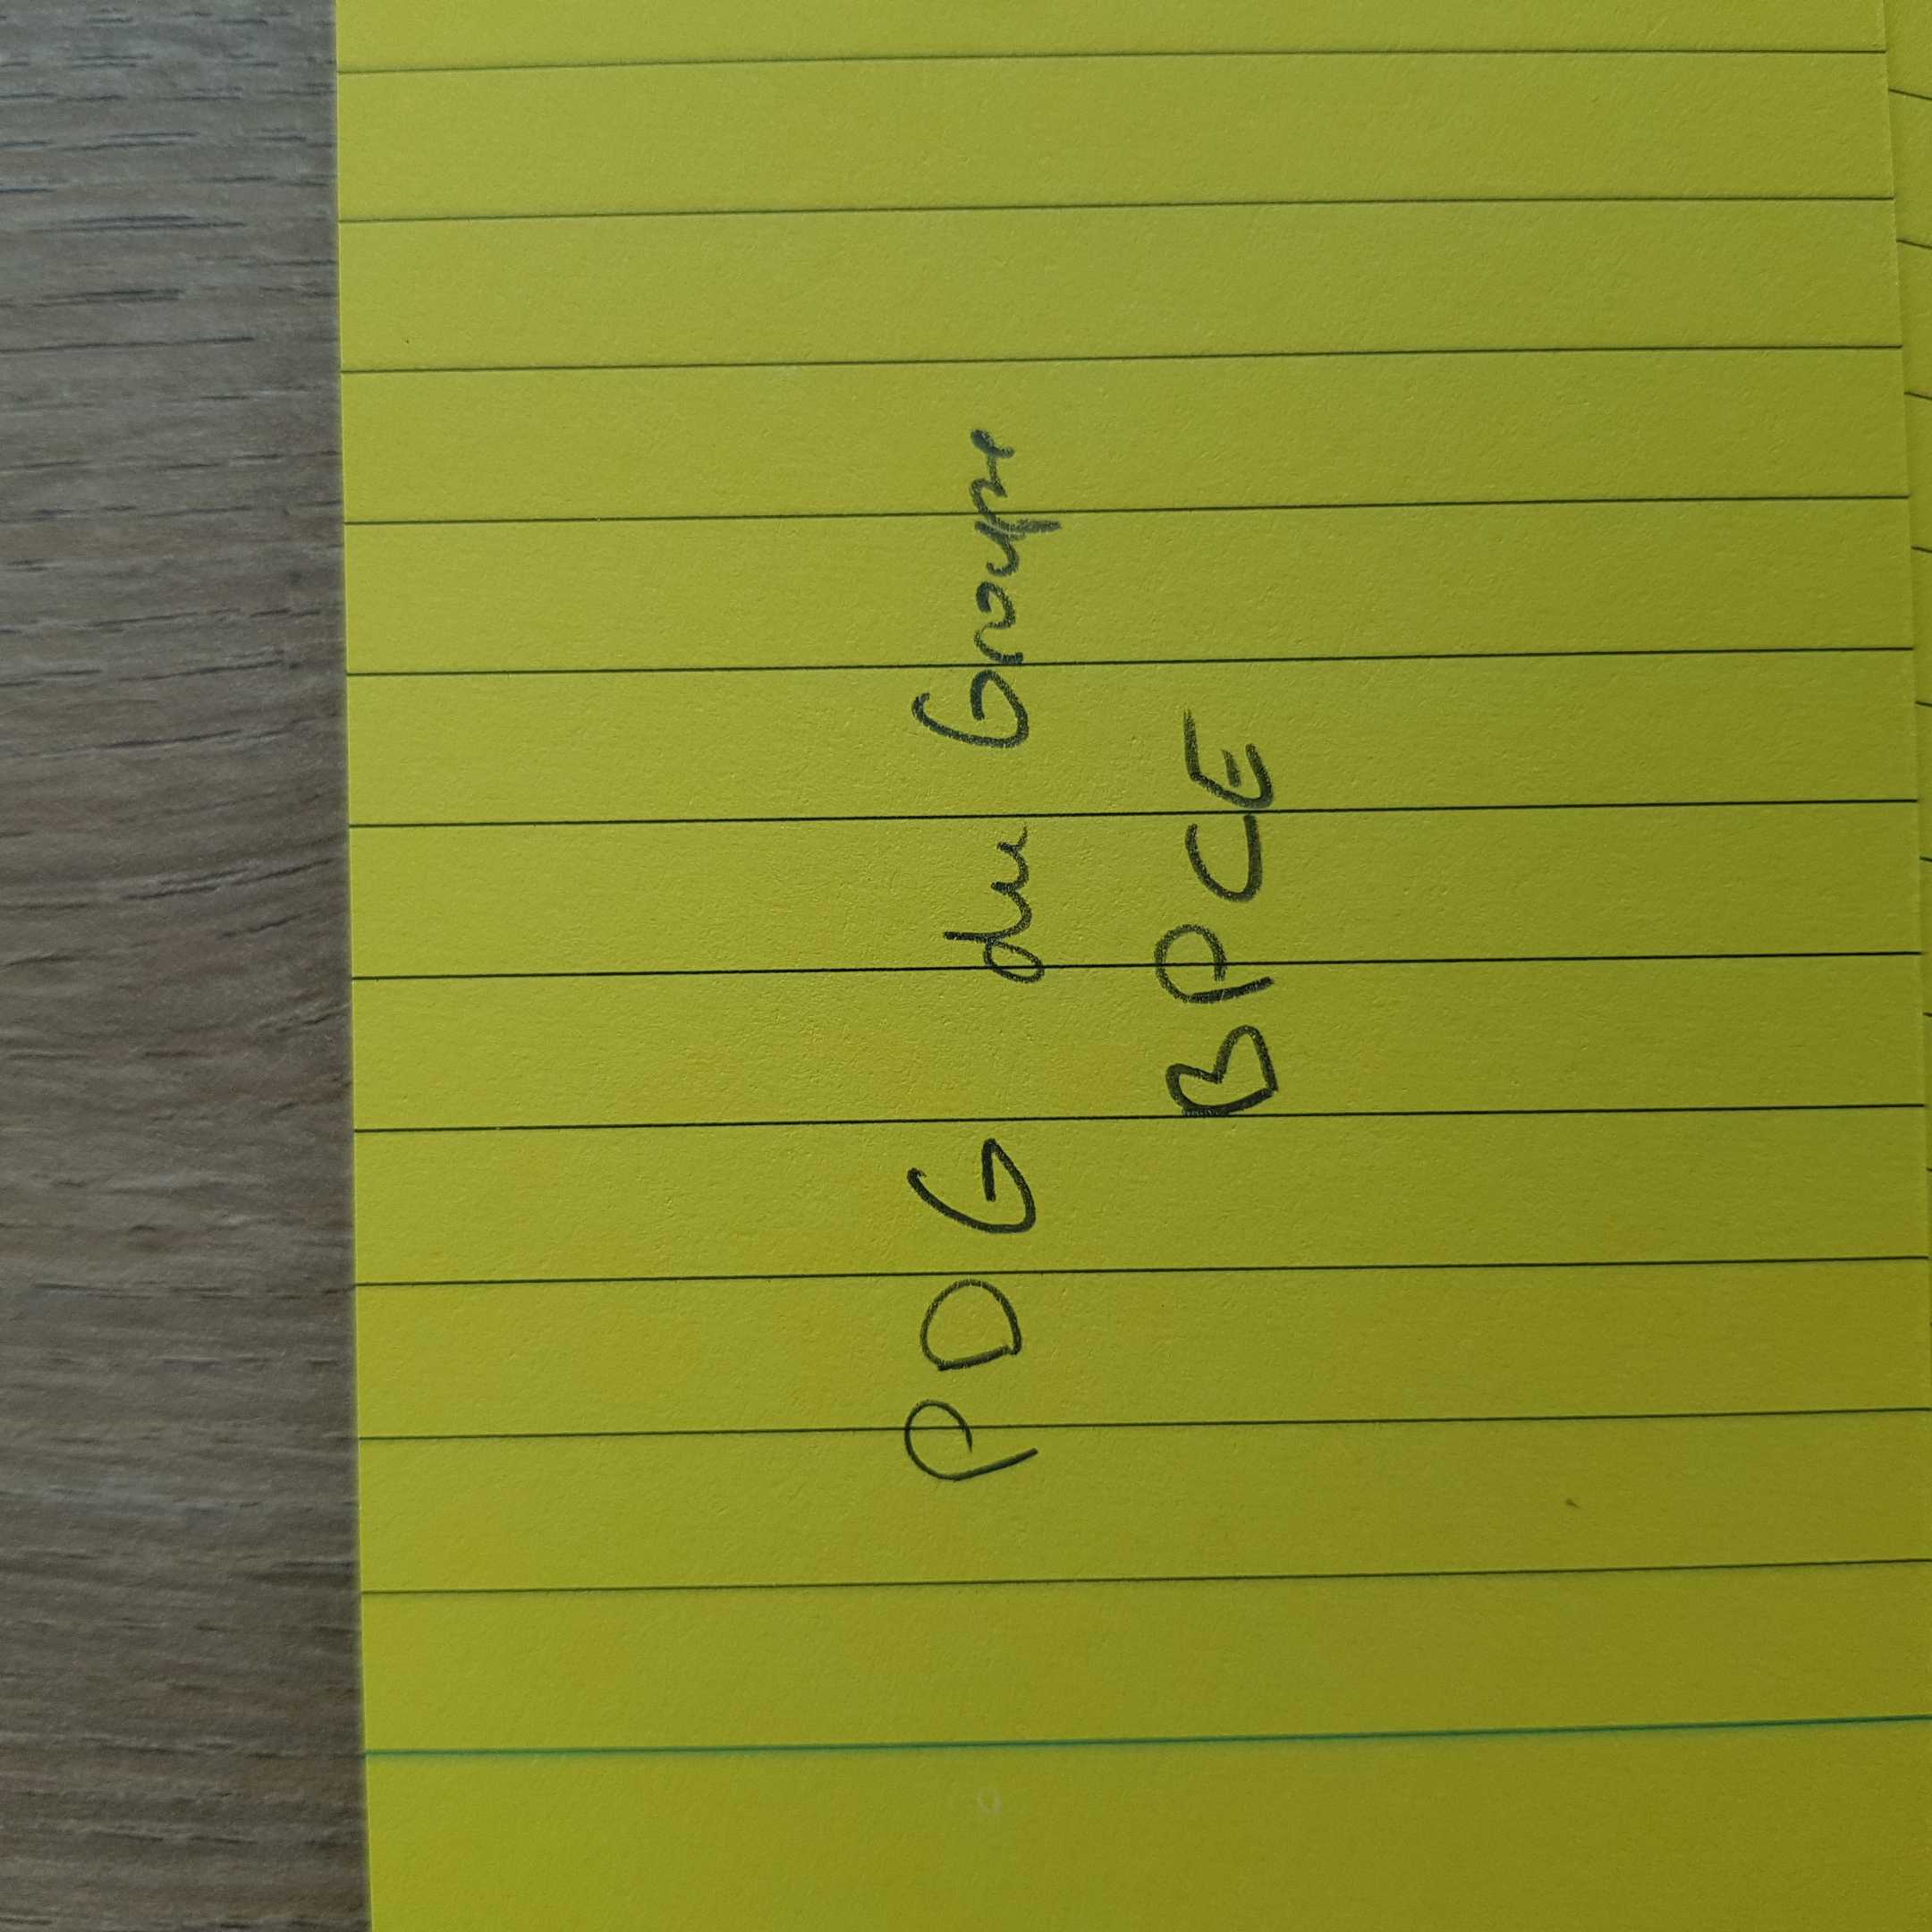 PDG du Groupe
BPCE